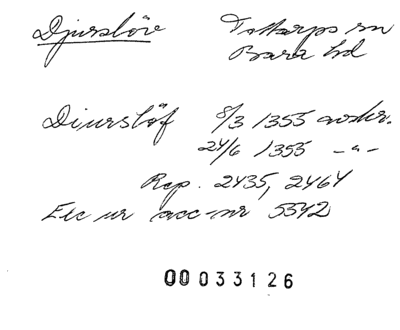 Djurslöv Tottarps sn
Bara hd
Diurslöf 8/3 1355 avskr.
24/6 1355 -"-
Rep. 2435, 2464
Exc ur acc-nr 5542
00033126